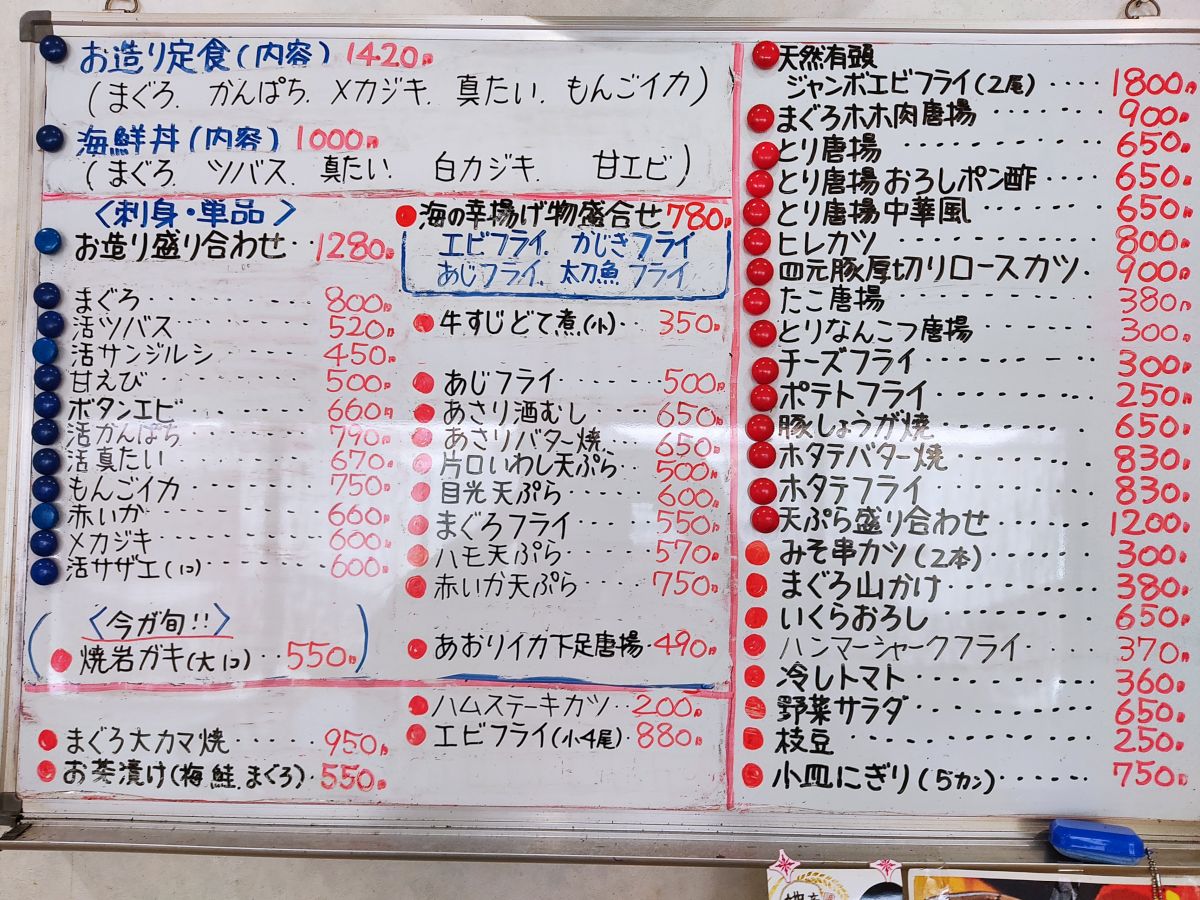 お造り定食(内容) 1420円
(まぐろ. かんぱち. メカジキ. 真たい. もんごイカ)
海鮮丼(内容) 1000円
(まぐろ. ツバス. 真たい. 白カジキ. 甘エビ)
〈刺身・単品〉
お造り盛り合わせ・・1280円
まぐろ・・・・・・・・800円
活ツバス・・・・・・・520円
活サンジルシ・・・・・450円
甘えび・・・・・・・・500円
ボタンエビ・・・・・・660円
活かんぱち・・・・・・790円
活真たい・・・・・・・670円
もんごイカ・・・・・・750円
赤いか・・・・・・・・660円
メカジキ・・・・・・・600円
活サザエ(1コ)・・・・600円
〈今が旬!!〉
焼岩ガキ(大1コ)・・550円
まぐろ大カマ焼・・・・950円
お茶漬け(梅.鮭.まぐろ)・550円
海の幸揚げ物盛合せ 780円
エビフライ. かじきフライ
あじフライ. 太刀魚フライ
牛すじどて煮(小)・・・350円
あじフライ・・・・・・500円
あさり酒むし・・・・・650円
あさりバター焼・・・・650円
片口いわし天ぷら・・・500円
目光天ぷら・・・・・・600円
まぐろフライ・・・・・550円
ハモ天ぷら・・・・・・570円
赤いか天ぷら・・・・・750円
あおりイカ下足唐揚・490円
ハムステーキカツ・・200円
エビフライ(小4尾)・880円
天然有頭
ジャンボエビフライ(2尾)・・1800円
まぐろホホ肉唐揚・・・・・900円
とり唐揚・・・・・・・・・650円
とり唐揚おろしポン酢・・・650円
とり唐揚中華風・・・・・・650円
ヒレカツ・・・・・・・・・800円
四元豚厚切りロースカツ・・900円
たこ唐揚・・・・・・・・・380円
とりなんこつ唐揚・・・・・300円
チーズフライ・・・・・・・300円
ポテトフライ・・・・・・・250円
豚しょうが焼・・・・・・・650円
ホタテバター焼・・・・・・830円
ホタテフライ・・・・・・・830円
天ぷら盛り合わせ・・・・・1200円
みそ串カツ(2本)・・・・・300円
まぐろ山かけ・・・・・・・380円
いくらおろし・・・・・・・650円
ハンマーシャークフライ・・370円
冷しトマト・・・・・・・・360円
野菜サラダ・・・・・・・・650円
枝豆・・・・・・・・・・・250円
小皿にぎり(5カン)・・・・750円